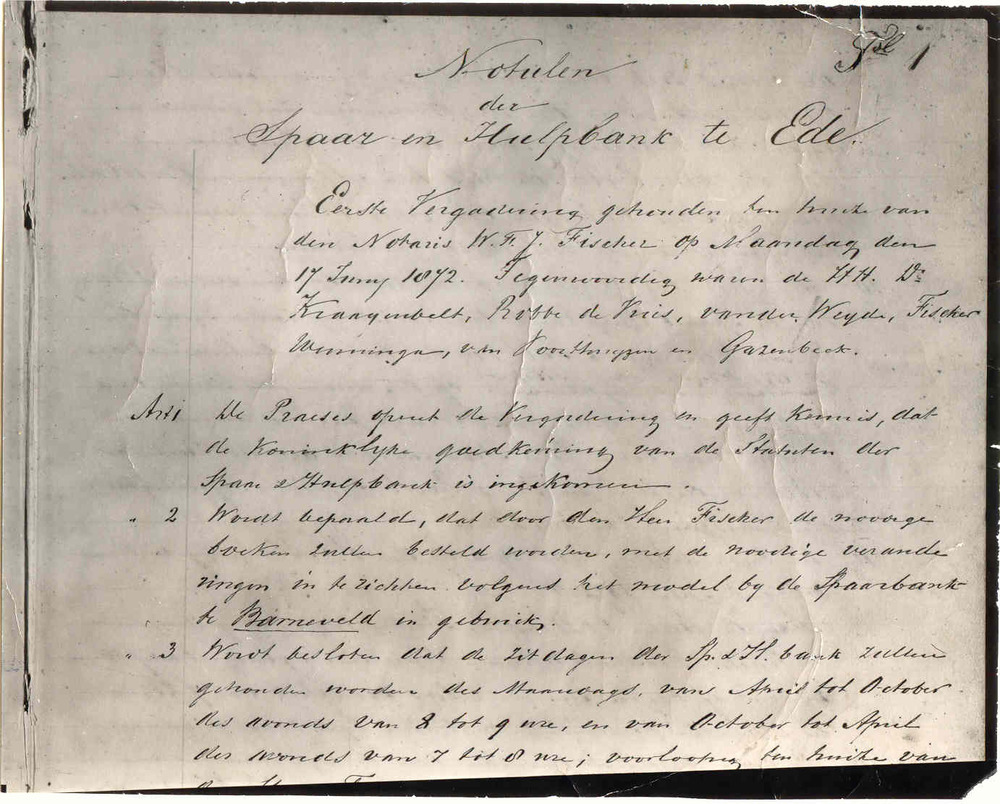 Fol 1
Notulen
der
Spaar en Hulpbank te Ede.
Eerste Vergadering gehouden ten huize van
den Notaris W. F. J. Fischer op Maandag den
17 Juny 1872. Tegenwoordig waren de HH. Ds
Kraayenbelt, Robbé de Vries, van der Weyde, Fischer
Wenninga, van Voorthuyzen en Gazenbeek.
Art 1 De Praeses opent de Vergadering en geeft kennis, dat
de Koninklyke goedkeuring van de Statuten der
Spaar & Hulpbank is ingekomen.
" 2 Wordt bepaald, dat door den Heer Fischer de noodige
boeken zullen besteld worden, met de noodige verande
ringen in te richten volgens het model by de Spaarbank
te Barneveld in gebruik.
" 3 Wordt besloten dat de zitdagen der Sp. & H. bank zullen
gehouden worden des Maandags, van April tot October
des avonds van 8 tot 9 ure, en van October tot April
des avonds van 7 tot 8 ure; voorloopig ten huize van